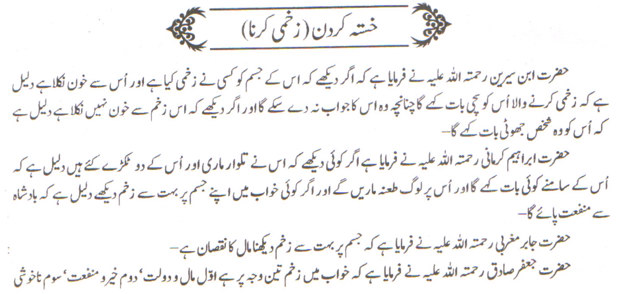 خستہ کردن (زخمی کرنا)
حضرت ابن سیرین رحمتہ اللہ علیہ نے فرمایا ہے کہ اگر دیکھے کہ اس کے جسم کو کسی نے زخمی کیا ہے اور اُس سے خون نکلا ہے دلیل
ہے کہ زخمی کرنے والا اُس کو سچی بات کہے گا چنانچہ وہ اس کا جواب نہ دے سکے گا اور اگر دیکھے کہ اس زخم سے خون نہیں نکلا ہے دلیل ہے
کہ اُس کو وہ شخص جھوٹی بات کہے گا۔
حضرت ابراہیم کرمانی رحمتہ اللہ علیہ نے فرمایا ہے اگر کوئی دیکھے کہ اس نے تلوار ماری اور اُس کے دو ٹکڑے کئے ہیں دلیل ہے کہ
اُس کے سامنے کوئی بات کہے گا اور اُس پر لوگ طعنہ ماریں گے اور اگر کوئی خواب میں اپنے جسم پر بہت سے زخم دیکھے دلیل ہے کہ بادشاہ
سے منفعت پائے گا۔
حضرت جابر مغربی رحمتہ اللہ علیہ نے فرمایا ہے کہ جسم پر بہت سے زخم دیکھنا مال کا نقصان ہے۔
حضرت جعفر صادق رحمتہ اللہ علیہ نے فرمایا ہے کہ خواب میں زخم تین وجہ پر ہے اوّل مال و دولت، دوم خیر و منفعت، سوم ناخوشی